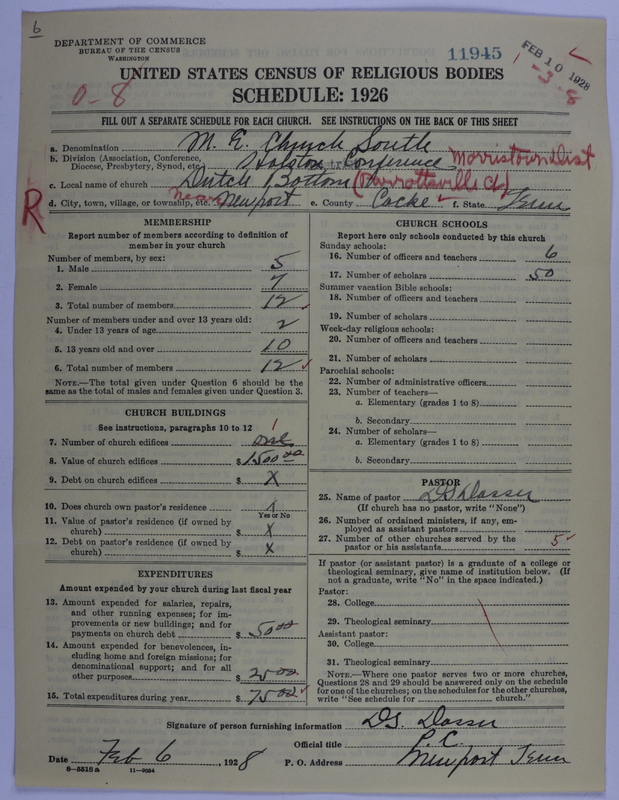 6
DEPARTMENT OF COMMERCE
BUREAU OF THE CENSUS
WASHINGTON
11945
FEB 10 1928
1-3-8
UNITED STATES CENSUS OF RELIGIOUS BODIES
0-8
SCHEDULE: 1926
FILL OUT A SEPARATE SCHEDULE FOR EACH CHURCH. SEE INSTRUCTIONS ON THE BACK OF THIS SHEET
a. Denomination M. E. Church South
b. Division (Association, Conference, Diocese, Presbytery, Synod, etc.) Holston Conference Morristown Dist
c. Local name of church Dutch Bottom (Parrottsville Ch)
d. City, town, village, or township, etc. near Newport e. County Cocke f. State Tenn
R
MEMBERSHIP
Report number of members according to definition of
member in your church
Number of members, by sex:
1. Male 5
2. Female 7
3. Total number of members 12
Number of members under and over 13 years old:
4. Under 13 years of age 2
5. 13 years old and over 10
6. Total number of members 12
NOTE.—The total given under Question 6 should be the
same as the total of males and females given under Question 3.
CHURCH BUILDINGS
See instructions, paragraphs 10 to 12
1
7. Number of church edifices one
8. Value of church edifices $1500 00
9. Debt on church edifices $ X
10. Does church own pastor's residence
Yes or No
11. Value of pastor's residence (if owned by
church) $ X
12. Debt on pastor's residence (if owned by
church) $ X
EXPENDITURES
Amount expended by your church during last fiscal year
13. Amount expended for salaries, repairs,
and other running expenses; for im-
provements or new buildings; and for
payments on church debt $ 50 00
14. Amount expended for benevolences, in-
cluding home and foreign missions; for
denominational support; and for all
other purposes $ 25 00
15. Total expenditures during year $ 75 00
CHURCH SCHOOLS
Report here only schools conducted by this church
Sunday schools:
16. Number of officers and teachers 6
17. Number of scholars 50
Summer vacation Bible schools:
18. Number of officers and teachers
19. Number of scholars
Week-day religious schools:
20. Number of officers and teachers
21. Number of scholars
Parochial schools:
22. Number of administrative officers
23. Number of teachers—
a. Elementary (grades 1 to 8)
b. Secondary
24. Number of scholars—
a. Elementary (grades 1 to 8)
b. Secondary
PASTOR
25. Name of pastor D S Dosser
(If church has no pastor, write "None")
26. Number of ordained ministers, if any, em-
ployed as assistant pastors
27. Number of other churches served by the
pastor or his assistants 5
If pastor (or assistant pastor) is a graduate of a college or
theological seminary, give name of institution below. (If
not a graduate, write "No" in the space indicated.)
Pastor:
28. College
29. Theological seminary
Assistant pastor:
30. College
31. Theological seminary
NOTE.—Where one pastor serves two or more churches,
Questions 28 and 29 should be answered only on the schedule
for one of the churches; on the schedules for the other churches,
write "See schedule for church."
Signature of person furnishing information D S. Dosser
Official title P. C.
Date Feb 6, 1928 P. O. Address Newport Tenn
8-5518a 11-9034